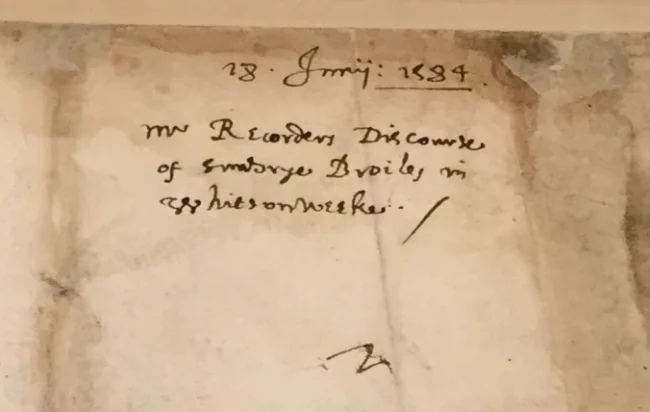 18. Junij: 1584.
mr Recorders Discourse
of sundrye Broiles in
whitsonweeke. /